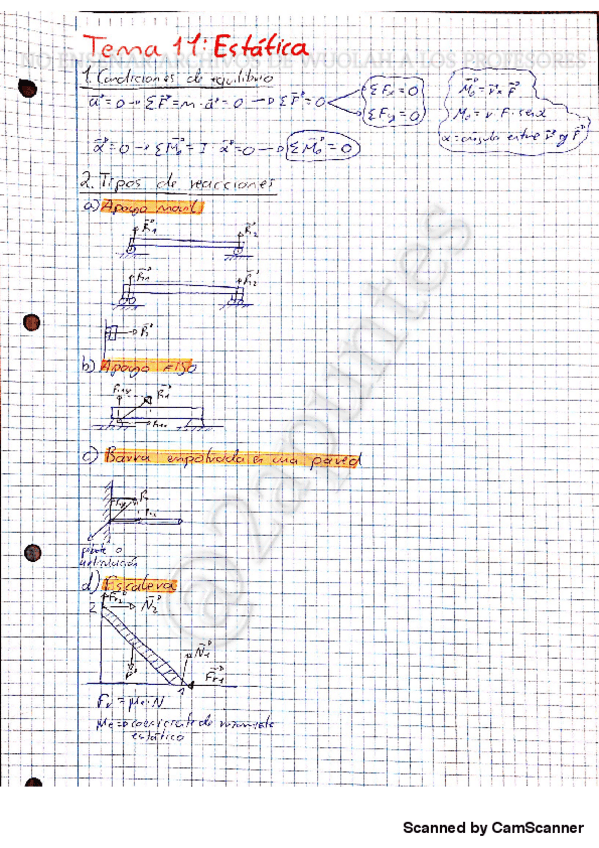 NO ENSEÑAR APUNTES DE WUOLAH A LOS PROFESORES
Tema 11: Estática
1. Condiciones de equilibrio
a⃗ = 0 → ΣF⃗ = m · a⃗ = 0 → ΣF⃗ = 0
ΣFx = 0
ΣFy = 0
M⃗o = r⃗ x F⃗
Mo = r · F · senα
α = ángulo entre r⃗ y F⃗
α⃗ = 0 → ΣM⃗o = I · α⃗ = 0 → ΣM⃗o = 0
2. Tipos de reacciones
a) Apoyo móvil
R⃗1 R⃗2
R⃗1 R⃗2
R⃗
b) Apoyo fijo
R⃗1
c) Barra empotrada en una pared
R
articulación
d) Escalera
2 Fr2 N⃗2
N⃗1
P⃗
1 F⃗r1
Fr = μe · N
μe → coeficiente de rozamiento
estático
@2apuntes
Scanned by CamScanner